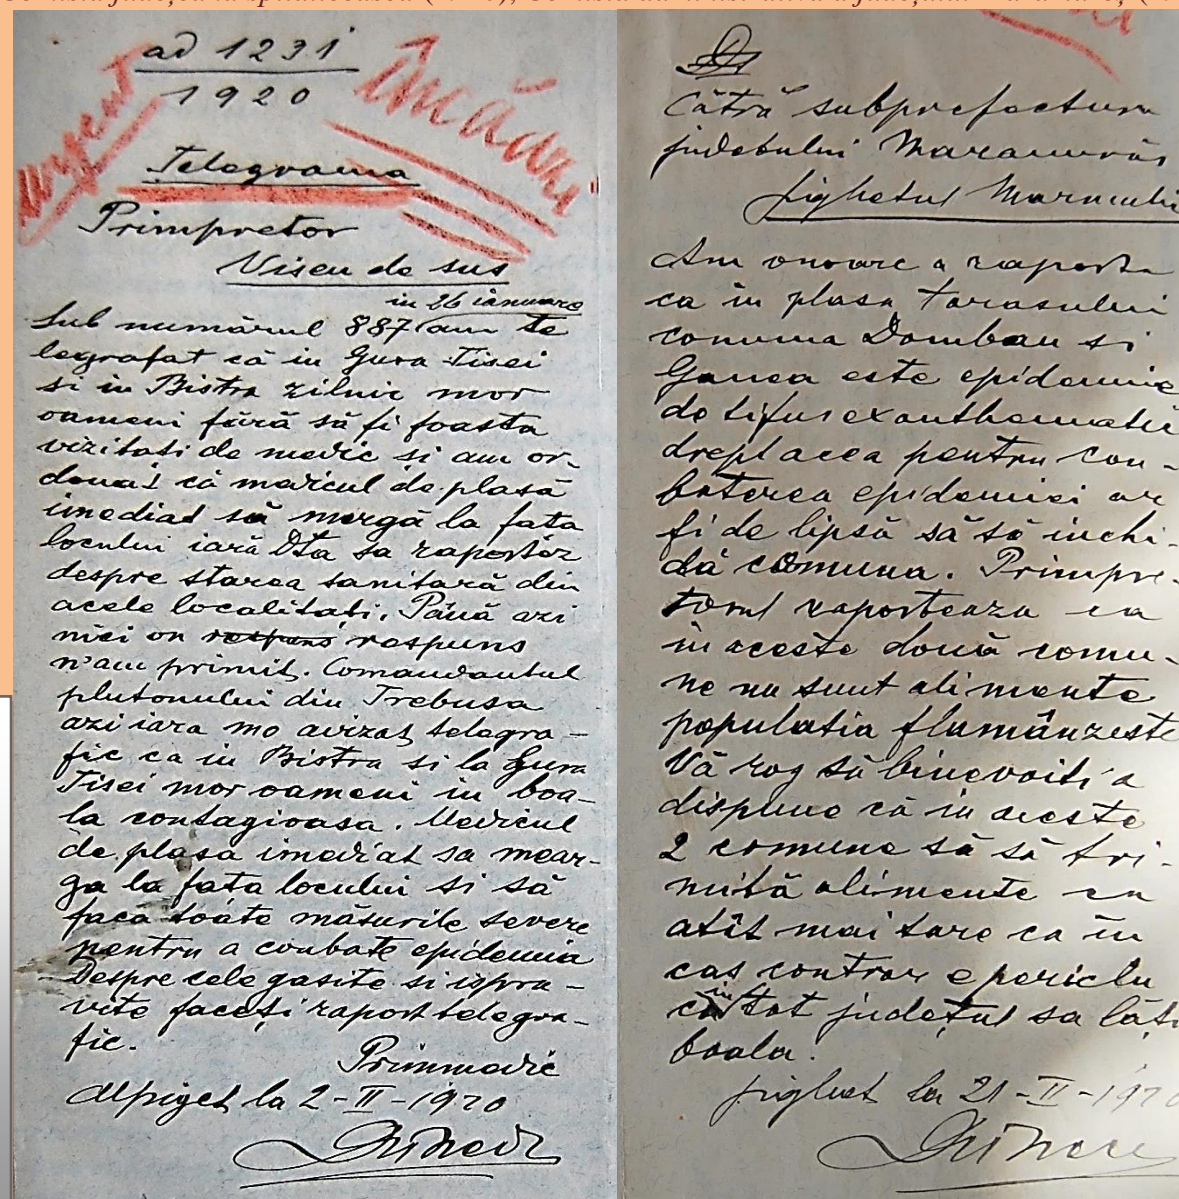 ad 1231
1920
urgent
Telegrama
Primpretor
Viseu de sus
in 26 ianuare
Sub numărul 887 am te
legrafat că in Gura Tisei
si in Bistra zilnic mor
oameni fără să fi foasta
vizitati de medic si am or-
donat că medicul de plasă
imediat să mergă la fata
locului iară Dta sa raportez
despre starea sanitară din
acele localitati. Până azi
nici on respuns respuns
n'am primit. Comandantul
plutonului din Trebusa
azi iara mo avizat telegra-
fic ca in Bistra si la Gura
Tisei mor oameni in boa-
la contagioasa. Medicul
de plasa imediat sa mear-
ga la fata locului si să
faca toate măsurile severe
pentru a conbate epidemia
Despre cele gasite si ispra-
vite faceți raport telegra-
fic.
Primmedic
la 2-II-1920
Cătră subprefectura
judetului Maramurăs
Sighetul Marmatiei
Am onoare a raporta
ca in plasa Tarasului
comuna Domban si
Ganea este epidemie
de tifus exanthematic
dreptacea pentru con-
baterea epidemiei ar
fi de lipsă să să inchi-
dă comuna. Primpre-
torul raporteaza ca
in aceste două comu-
ne nu sunt alimente
populatia flamânzeste
Vă rog să binevoiti a
dispune că in aceste
2 comune să să tri-
mită alimente cu
atît mai tare ca in
caz contrar e periclu
in tot județul sa lăți
boala.
Sighet la 21-II-1920